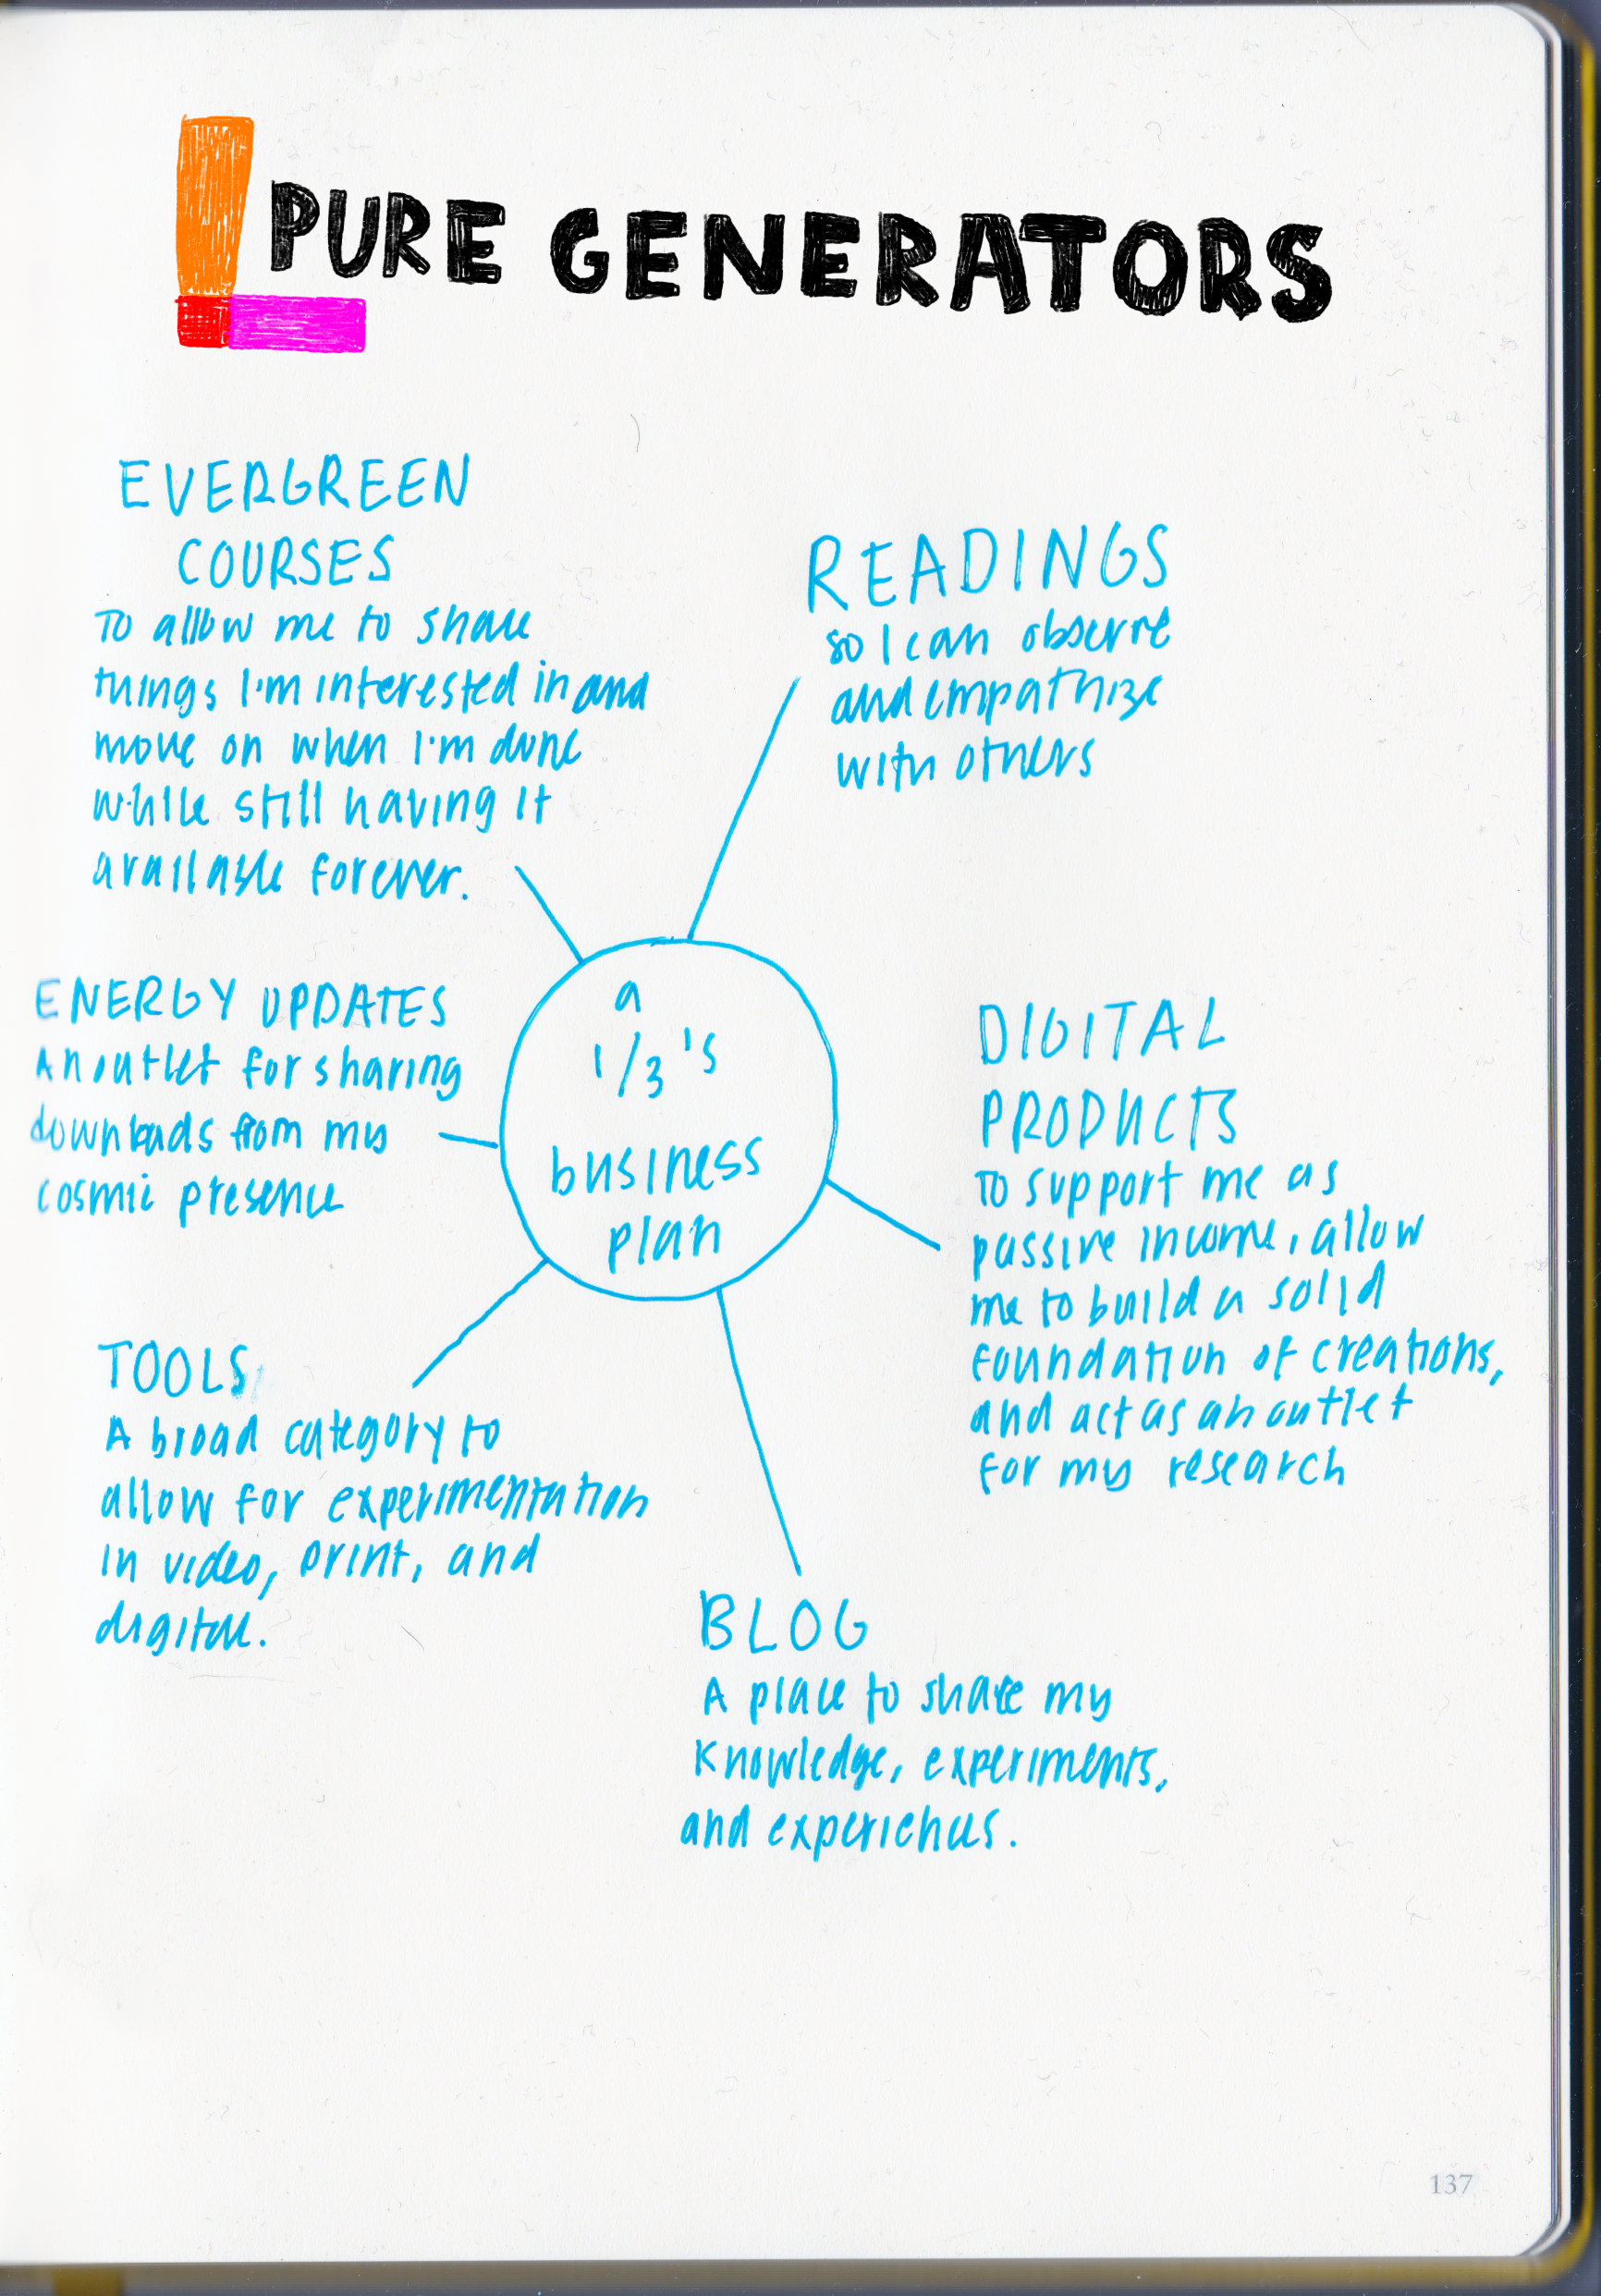 PURE GENERATORS
EVERGREEN
COURSES
To allow me to share
things I'm interested in and
move on when I'm done
while still having it
available forever.
READINGS
so I can observe
and empathize
with others
a
1/3's
business
plan
ENERGY UPDATES
An outlet for sharing
downloads from my
cosmic presence
DIGITAL
PRODUCTS
To support me as
passive income, allow
me to build a solid
foundation of creations,
and act as an outlet
for my research
TOOLS
A broad category to
allow for experimentation
in video, print, and
digital.
BLOG
A place to share my
knowledge, experiments,
and experiences.
137